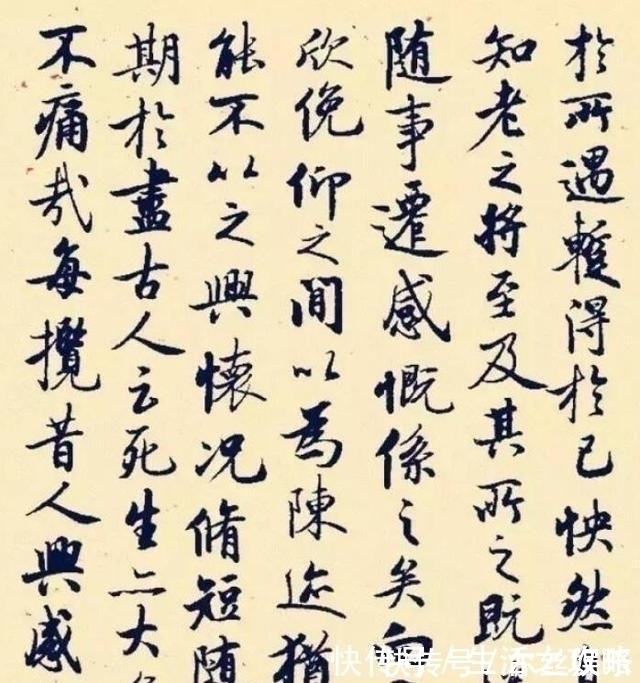 於所遇暫得於己怏然
知老之將至及其所之既
随事遷感慨係之矣向
欣俛仰之間以為陳迹猶
能不以之興懷况脩短随
期於盡古人云死生亦大
不痛哉每攬昔人興感